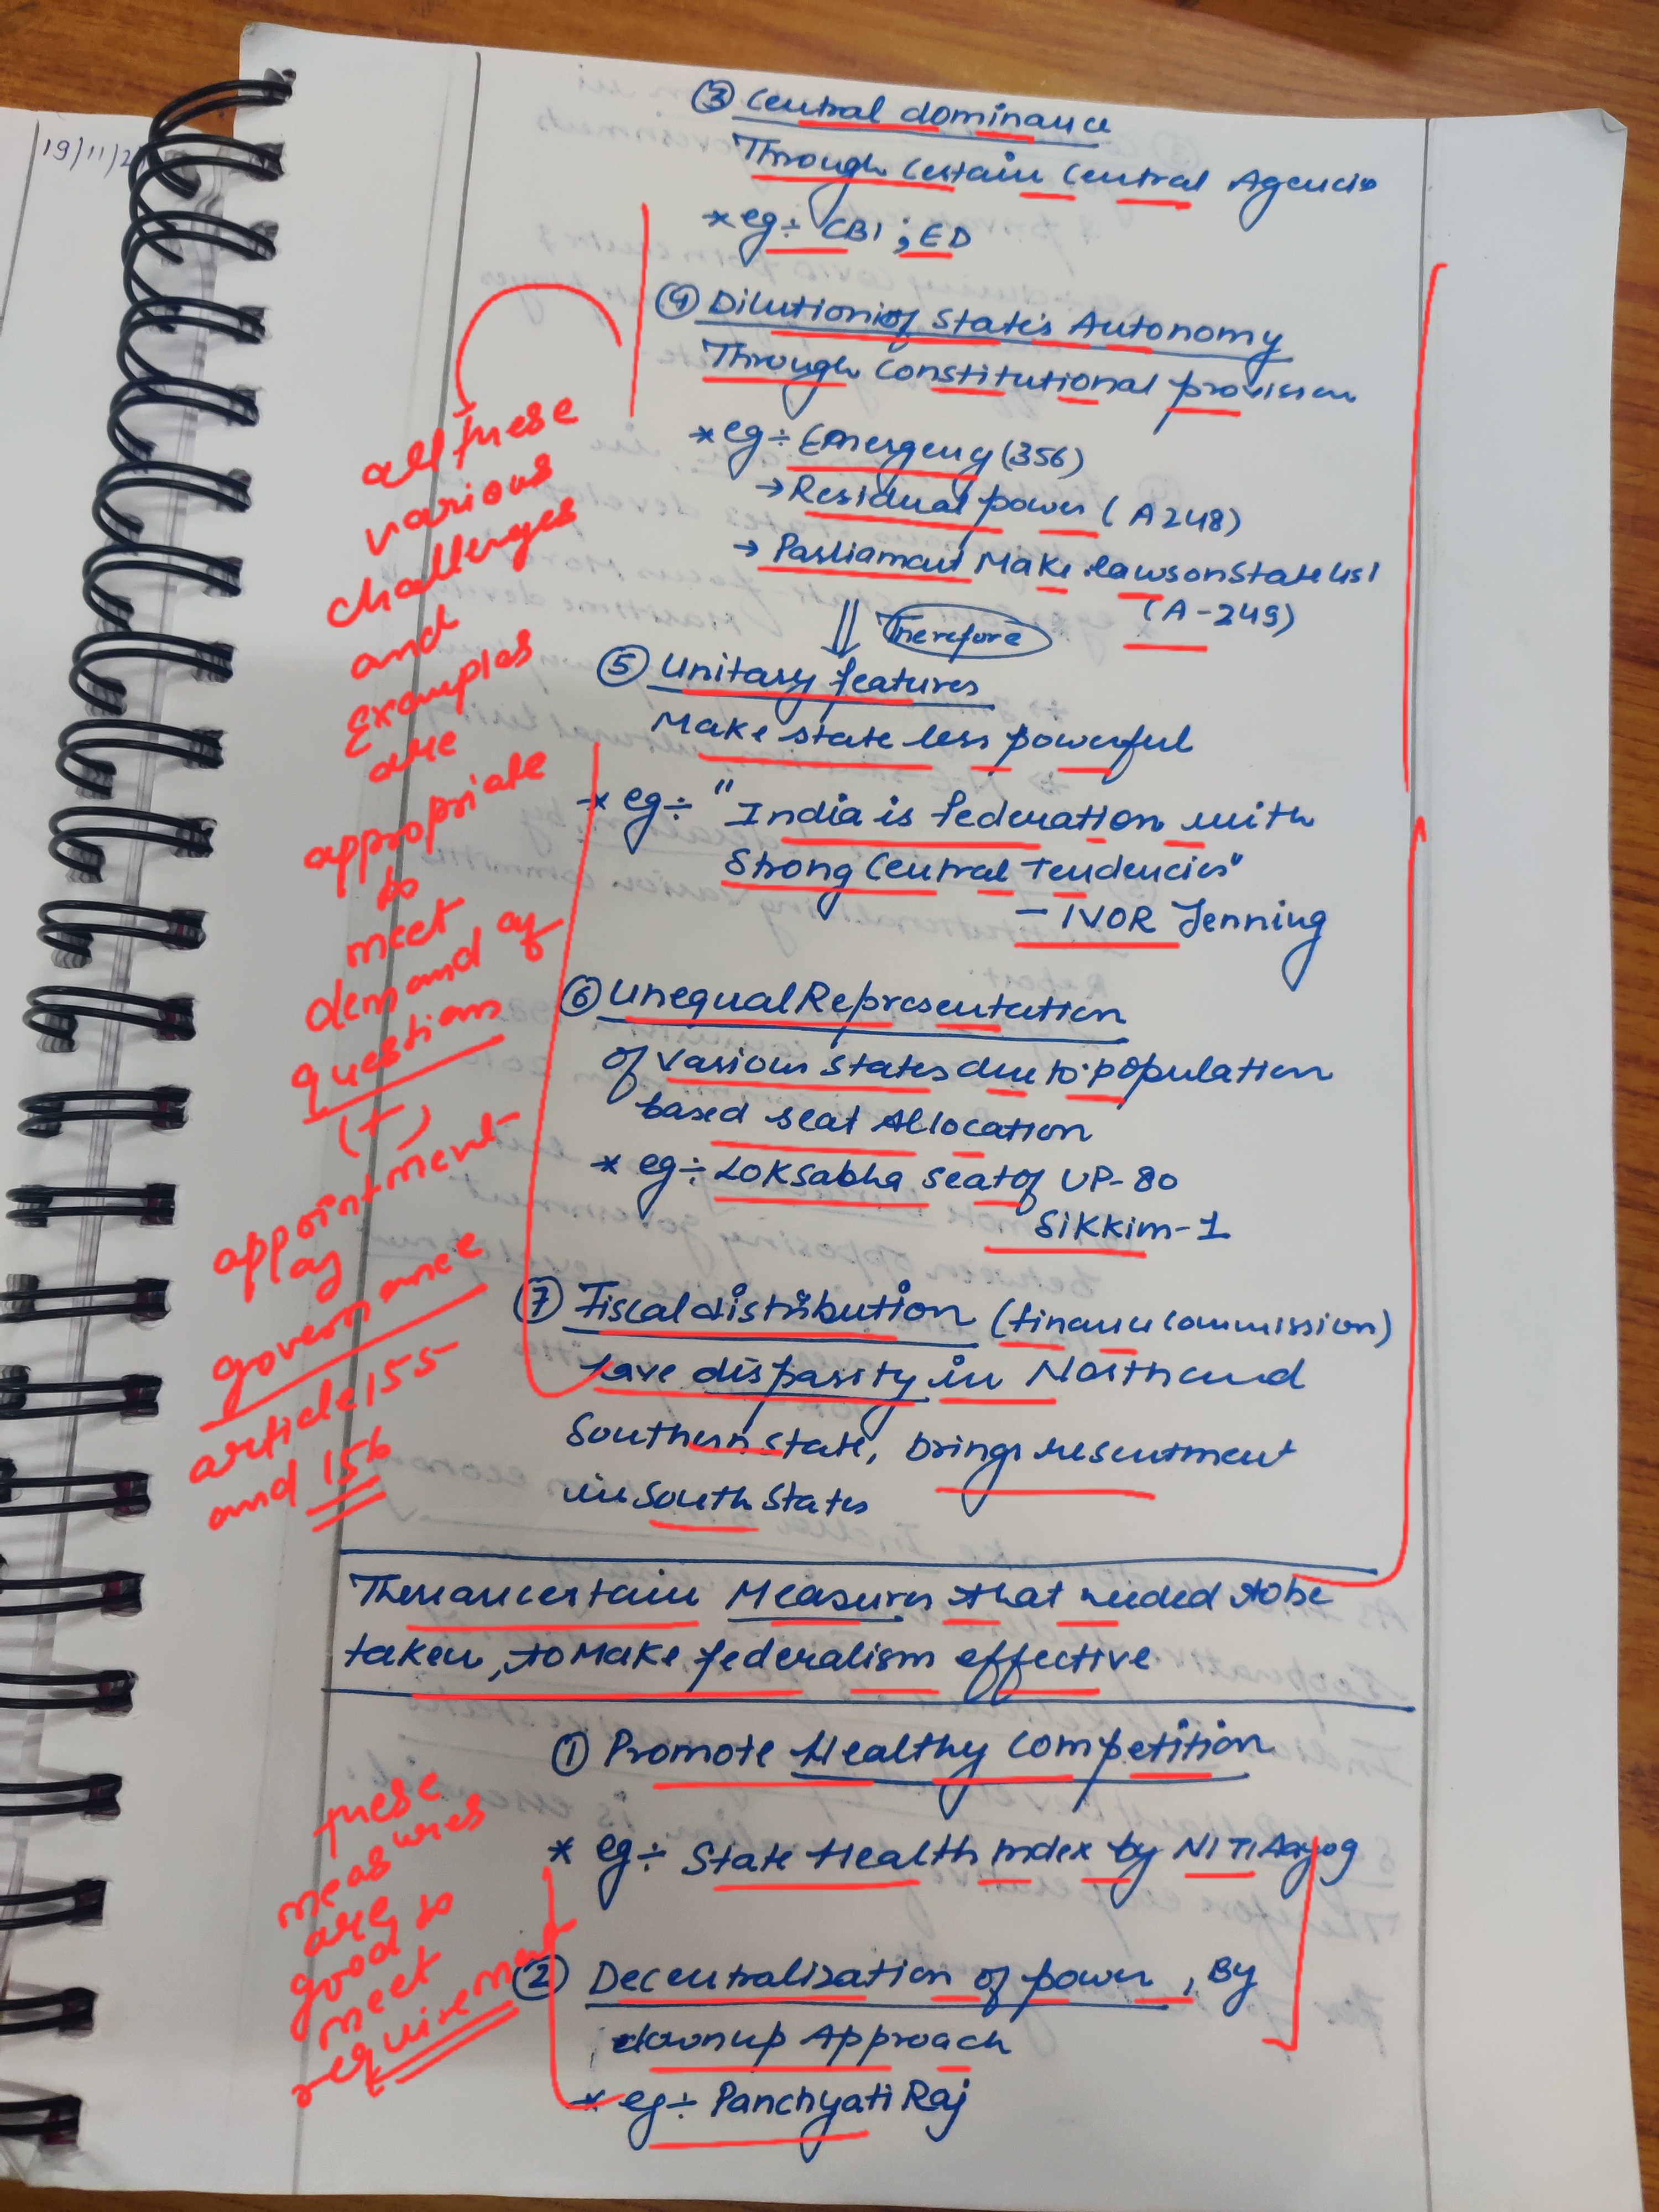 19/11/2
③ Central dominance
Through Certain Central Agencies
* eg÷ CBI ; ED
④ Dilution of State's Autonomy
Through Constitutional provision
* eg÷ Emergency (356)
→ Residual power (A 248)
→ Parliament Make laws on State list
(A-249)
Therefore
⑤ Unitary features
Make state less powerful
* eg÷ "India is federation with
Strong Central Tendencies"
- IVOR Jenning
⑥ Unequal Representation
of various states due to population
based seat Allocation
* eg÷ Loksabha seat of UP-80
Sikkim-1
⑦ Fiscal distribution (finance commission)
have disparity in North and
Southern state, brings resentment
in South States
all these
various
challenges
and
Examples
are
appropriate
to
meet
demand of
questions
(+)
appointment
of
governance
article 155
and 156
There are certain Measures that needed to be
taken, to Make federalism effective
① Promote Healthy Competition
* eg÷ State Health Index by NITI Aayog
② Decentralization of power, By
down up Approach
* eg÷ Panchyati Raj
these
measures
are
good to
meet
requirement